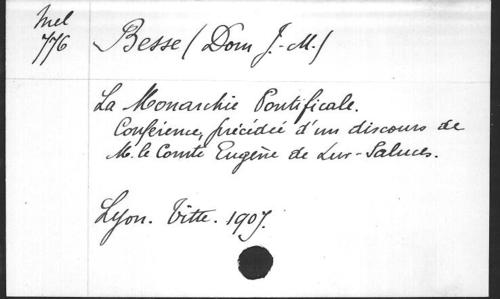 Mel
776
Besse (Dom J.-M.)
La Monarchie Pontificale.
Conférence, précédée d'un discours de
M. le Comte Eugène de Lur-Saluces.
Lyon. Vitte. 1907.